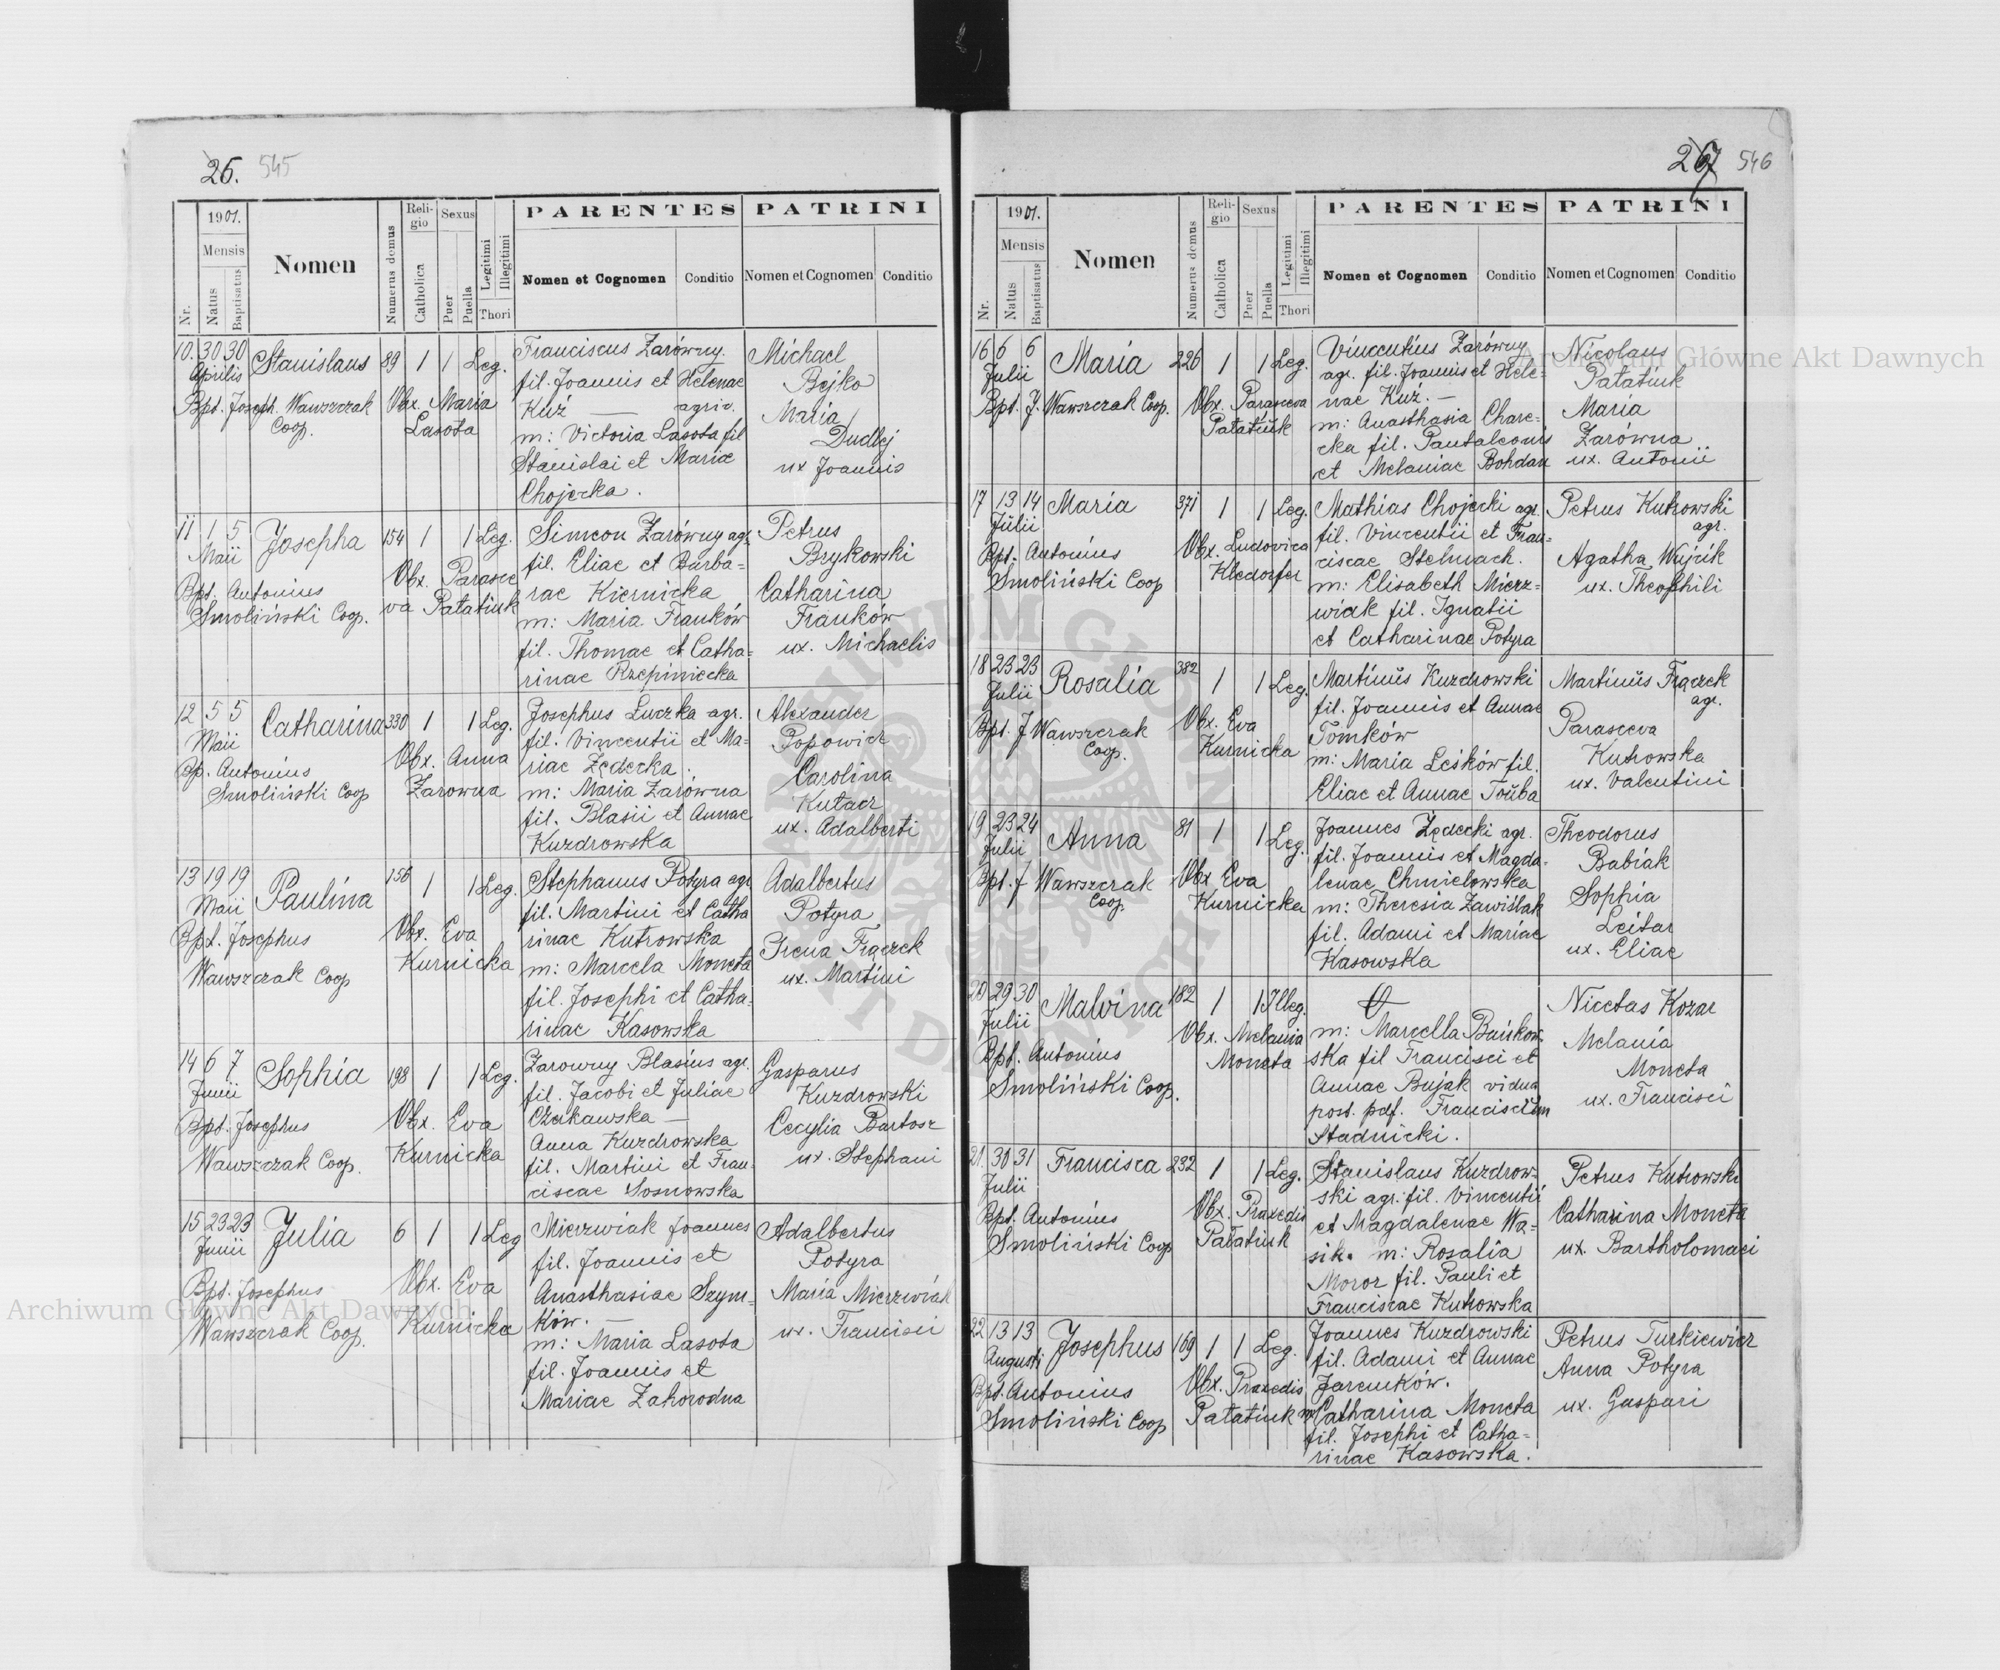 26. 545
1901.
Mensis
Nr.
Natus
Baptisatus
Nomen
Numerus domus
Religio
Catholica
Sexus
Puer
Puella
Legitimi
Illegitimi
Thori
PARENTES
Nomen et Cognomen
Conditio
PATRINI
Nomen et Cognomen
Conditio
10. 30 30 Stanislaus 89 1 1 Leg.
Aprilis
Bpt. Joseph. Wawszczak
Coop.
Obx. Maria
Lasota
Franciscus Zarówny
fil. Joannis et Helenae
Kuź — agric.
m: Victoria Lasota fil
Stanislai et Mariae
Chojecka.
Michael
Bojko
Maria
Dudlej
ux Joannis
11 1 5 Josepha 154 1 1 Leg.
Maii
Bpt. Antonius
Smoliński Coop.
Obx. Parasce
va Patatiuk
Simeon Zarówny agr.
fil. Eliae et Barba=
rae Kiernicka
m: Maria Franków
fil. Thomae et Catha=
rinae Rzepiniecka
Petrus
Brykowski
Catharina
Franków
ux. Michaelis
12 5 5 Catharina 330 1 1 Leg.
Maii
Bp. Antonius
Smoliński Coop
Obx. Anna
Zarowna
Josephus Luczka agr.
fil. Vincentii et Ma=
riae Zędecka.
m: Maria Zarówna
fil. Blasii et Annae
Kuzdrowska
Alexander
Popowicz
Carolina
Kutacz
ux. Adalberti
13 19 19 Paulina 156 1 1 Leg.
Maii
Bpt. Josephus
Wawszczak Coop
Obx. Eva
Kurnicka
Stephanus Potyra agr
fil. Martini et Catha
rinae Kutrowska
m: Marcela Moneta
fil. Josephi et Catha=
rinae Kasowska
Adalbertus
Potyra
Irena Frączek
ux. Martini
14 6 7 Sophia 198 1 1 Leg.
Junii
Bpt. Josephus
Wawszczak Coop.
Obx. Eva
Kurnicka
Zarowny Blasius agr.
fil. Jacobi et Juliae
Czakawska —
Anna Kuzdrowska
fil. Martini et Fran=
ciscae Sosnowska
Gasparus
Kuzdrowski
Cecylia Bartosz
ux. Stephani
15 23 23 Julia 6 1 1 Leg
Junii
Bpt. Josephus
Wawszczak Coop.
Obx. Eva
Kurnicka
Mierzwiak Joannes
fil. Joannis et
Anasthasiae Szym=
ków. —
m: Maria Lasota
fil. Joannis et
Mariae Zahorodna
Adalbertus
Potyra
Maria Mierzwiak
ux. Francisci
267 546
1901.
Mensis
Nr.
Natus
Baptisatus
Nomen
Numerus domus
Religio
Catholica
Sexus
Puer
Puella
Legitimi
Illegitimi
Thori
PARENTES
Nomen et Cognomen
Conditio
PATRINI
Nomen et Cognomen
Conditio
16 6 6 Maria 226 1 1 Leg.
Julii
Bpt. J. Wawszczak Coop.
Obx. Parasceva
Patatiuk
Vincentius Zarówny
agr. fil. Joannis et Hele=
nae Kuź. —
m: Anasthasia Charc=
cka fil. Pantaleonis
et Melaniae Bohdan
Nicolaus
Patatiuk
Maria
Zarówna
ux. Antonii
17 13 14 Maria 371 1 1 Leg.
Julii
Bpt. Antonius
Smoliński Coop
Obx. Ludovica
Kledorfer
Mathias Chojecki agr.
fil. Vincentii et Fran=
ciscae Stelmach.
m: Elisabeth Mierz=
wiak fil. Ignatii
et Catharinae Potyra
Petrus Kutrowski
agr.
Agatha Wujcik
ux. Theophili
18 23 23 Rosalia 382 1 1 Leg.
Julii
Bpt. J Wawszczak
Coop.
Obx. Eva
Kurnicka
Martinus Kuzdrowski
fil. Joannis et Annae
Tomków
m: Maria Leśków fil.
Eliae et Annae Touba
Martinus Frączek
agr.
Parasceva
Kutrowska
ux. Valentini
19 23 24 Anna 81 1 1 Leg.
Julii
Bpt. J Wawszczak
Coop.
Obx Eva
Kurnicka
Joannes Zędecki agr.
fil. Joannis et Magda=
lenae Chmielowska
m: Theresia Zawiślak
fil. Adami et Mariae
Kasowska
Theodorus
Babiak
Sophia
Leitar
ux. Eliae
20 29 30 Malvina 182 1 1 Illeg.
Julii
Bpt. Antonius
Smoliński Coop.
Obx. Melania
Moneta
m: Marcella Bańkow=
ska fil Francisci et
Annae Bujak vidua
post. pdf. Franciscum
Stadnicki.
Nicetas Kozar
Melania
Moneta
ux. Francisci
21. 30 31 Francisca 232 1 1 Leg.
Julii
Bpt. Antonius
Smoliński Coop
Obx. Praxedis
Patatiuk
Stanislaus Kuzdrow=
ski agr. fil. Vincentii
et Magdalenae Wa=
sik. m: Rosalia
Moroz fil. Pauli et
Franciscae Kutrowska
Petrus Kutrowski
Catharina Moneta
ux. Bartholomaei
22 13 13 Josephus 169 1 1 Leg.
Augusti
Bpt. Antonius
Smoliński Coop
Obx. Praxedis
Patatiuk
Joannes Kuzdrowski
fil. Adami et Annae
Jaremków.
m: Catharina Moneta
fil. Josephi et Catha=
rinae Kasowska.
Petrus Turkiewicz
Anna Potyra
ux. Gaspari
Archiwum Główne Akt Dawnych
Archiwum Główne Akt Dawnych
ARCHIWUM GŁÓWNE AKT DAWNYCH